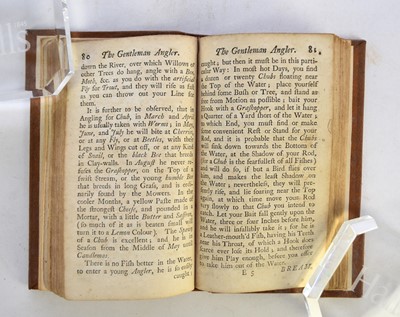 80 The Gentleman Angler.
down the River, over which Willows or
other Trees do hang, angle with a Bob,
Moth, &c. as you do with the artificial
Fly for Trout, and they will rise as fast
as you can throw out your Line for
them.
It is further to be observed, that in
Angling for Chub, in March and April
he is usually taken with Worms; in May,
June, and July he will bite at Cherries,
or at any Fly, or at Beetles, with their
Legs and Wings cut off, or at any Kind
of Snail, or the black Bee that breeds
in Clay-walls. In August he never re-
fuses the Grashopper, on the Top of a
swift Stream, or the young humble Bee
that breeds in long Grass, and is ordi-
narily found by the Mowers. In the
cooler Months, a yellow Paste made of
the strongest Cheese, and pounded in a
Mortar, with a little Butter and Saffron,
(so much of it as is beaten small will
turn it to a Lemon Colour). The Spawn
of a Chub is excellent; and he is in
Season from the Middle of May until
Candlemas.
There is no Fish better in the Water,
to enter a young Angler, he is so easily
caught;
The Gentleman Angler. 81
caught; but then it must be in this parti-
cular Way: In most hot Days, you find
a dozen or twenty Chubs floating near
the Top of the Water; place yourself
behind some Bush or Tree, and stand as
free from Motion as possible; bait your
Hook with a Grashopper, and let it hang
a Quarter of a Yard short of the Water;
to which End, you must find or make
some convenient Rest or Stand for your
Rod, and it is probable that the Chubs
will sink down towards the Bottom of
the Water, at the Shadow of your Rod,
(for a Chub is the fearfullest of all Fishes)
and will do so, if but a Bird flies over
him, and makes the least Shadow on
the Water; nevertheless, they will pre-
sently rise, and lie soaring near the Top
again, at which time move your Rod
very slowly to that Chub you intend to
catch. Let your Bait fall gently upon the
Water, three or four Inches before him,
and he will infallibly take it; for he is
a Leather-mouth'd Fish, having his Teeth
near his Throat, of which a Hook does
scarce ever lose its Hold; and therefore
give him Play enough, before you offer
to take him out of the Water.
E 5 BREAM.